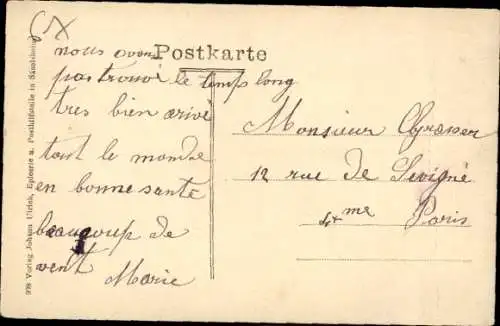 Postkarte
nous avons
pas trouvé le temps long
tres bien arivé
tout le monde
en bonne santé
beaucoup de
vent Marie
Monsieur
12 rue de Sevigné
4me Paris
998 Verlag Johann Ulrich, Epicerie u. Posthilfstelle in